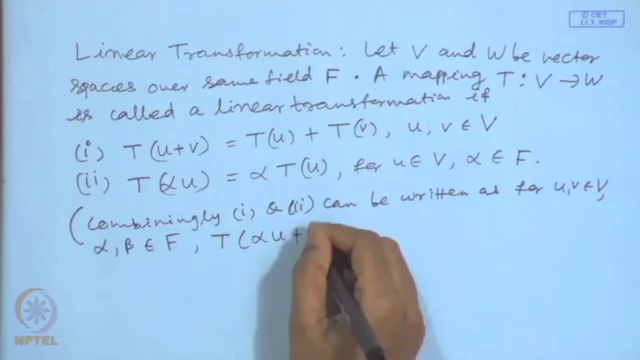 © CET
I.I.T. KGP
Linear Transformation: Let V and W be vector
spaces over same field F. A mapping T: V → W
is called a linear transformation if
(i) T(u+v) = T(u) + T(v), u, v ∈ V
(ii) T(αu) = α T(u), for u ∈ V, α ∈ F.
(Combiningly (i) & (ii) can be written as for u, v ∈ V,
α, β ∈ F, T(αu +
NPTEL